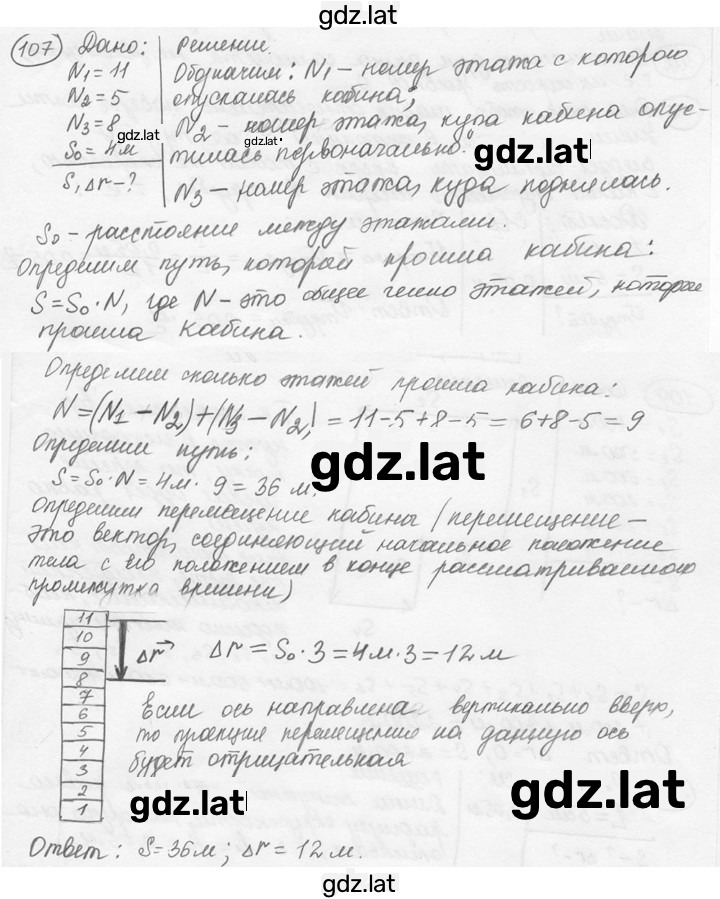 gdz.lat
107 Дано: Решение.
N₁ = 11 Обозначим: N₁ – номер этажа с которого
N₂ = 5 опускалась кабина;
N₃ = 8 N₂ номер этажа, куда кабина опус-
gdz.lat
S₀ = 4м тилась первоначально.
gdz.lat
S, Δr – ? N₃ – номер этажа, куда поднялась.
S₀ – расстояние между этажами.
Определим путь, который прошла кабина:
S = S₀ · N, где N – это общее число этажей, которые
прошла кабина.
Определим сколько этажей прошла кабина:
N = (N₁ – N₂) + (N₃ – N₂) = 11 – 5 + 8 – 5 = 6 + 8 – 5 = 9
Определим путь:
gdz.lat
S = S₀ · N = 4м · 9 = 36 м.
Определим перемещение кабины (перемещение –
это вектор, соединяющий начальное положение
тела с его положением в конце рассматриваемого
промежутка времени)
11
10
9 Δr Δr = S₀ · 3 = 4м · 3 = 12 м
8
7
6 Если ось направлена вертикально вверх,
5 то проекция перемещения на данную ось
4 будет отрицательная
3
2
1
gdz.lat
gdz.lat
Ответ: S = 36м; Δr = 12 м.
gdz.lat